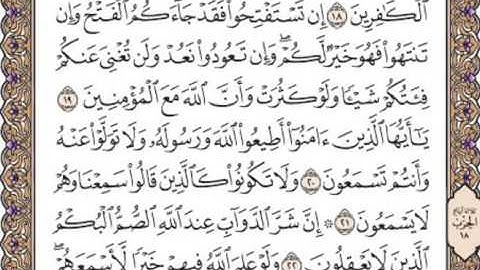 ٱلۡكَٰفِرِينَ ١٨ إِن تَسۡتَفۡتِحُواْ فَقَدۡ جَآءَكُمُ ٱلۡفَتۡحُۖ وَإِن
تَنتَهُواْ فَهُوَ خَيۡرٞ لَّكُمۡۖ وَإِن تَعُودُواْ نَعُدۡ وَلَن تُغۡنِيَ عَنكُمۡ
فِئَتُكُمۡ شَيۡـٔٗا وَلَوۡ كَثُرَتۡ وَأَنَّ ٱللَّهَ مَعَ ٱلۡمُؤۡمِنِينَ ١٩
يَٰٓأَيُّهَا ٱلَّذِينَ ءَامَنُوٓاْ أَطِيعُواْ ٱللَّهَ وَرَسُولَهُۥ وَلَا تَوَلَّوۡاْ عَنۡهُ
وَأَنتُمۡ تَسۡمَعُونَ ٢٠ وَلَا تَكُونُواْ كَٱلَّذِينَ قَالُواْ سَمِعۡنَا وَهُمۡ
لَا يَسۡمَعُونَ ٢١ ۞ إِنَّ شَرَّ ٱلدَّوَآبِّ عِندَ ٱللَّهِ ٱلصُّمُّ ٱلۡبُكۡمُ
ٱلَّذِينَ لَا يَعۡقِلُونَ ٢٢ وَلَوۡ عَلِمَ ٱللَّهُ فِيهِمۡ خَيۡرٗا لَّأَسۡمَعَهُمۡۖ
الحزب
١٨